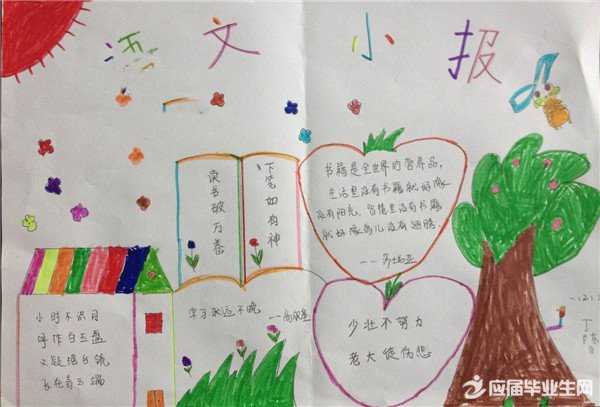 语文小报
读书破万卷
下笔如有神
书籍是全世界的营养品。
生活里没有书籍就好像
没有阳光,智慧里没有书籍
就好像鸟儿没有翅膀。
——莎士比亚
小时不识月
呼作白玉盘
又疑瑶台镜
飞在青云端
学习永远不晚 ——高尔基
少壮不努力
老大徒伤悲
应届毕业生网